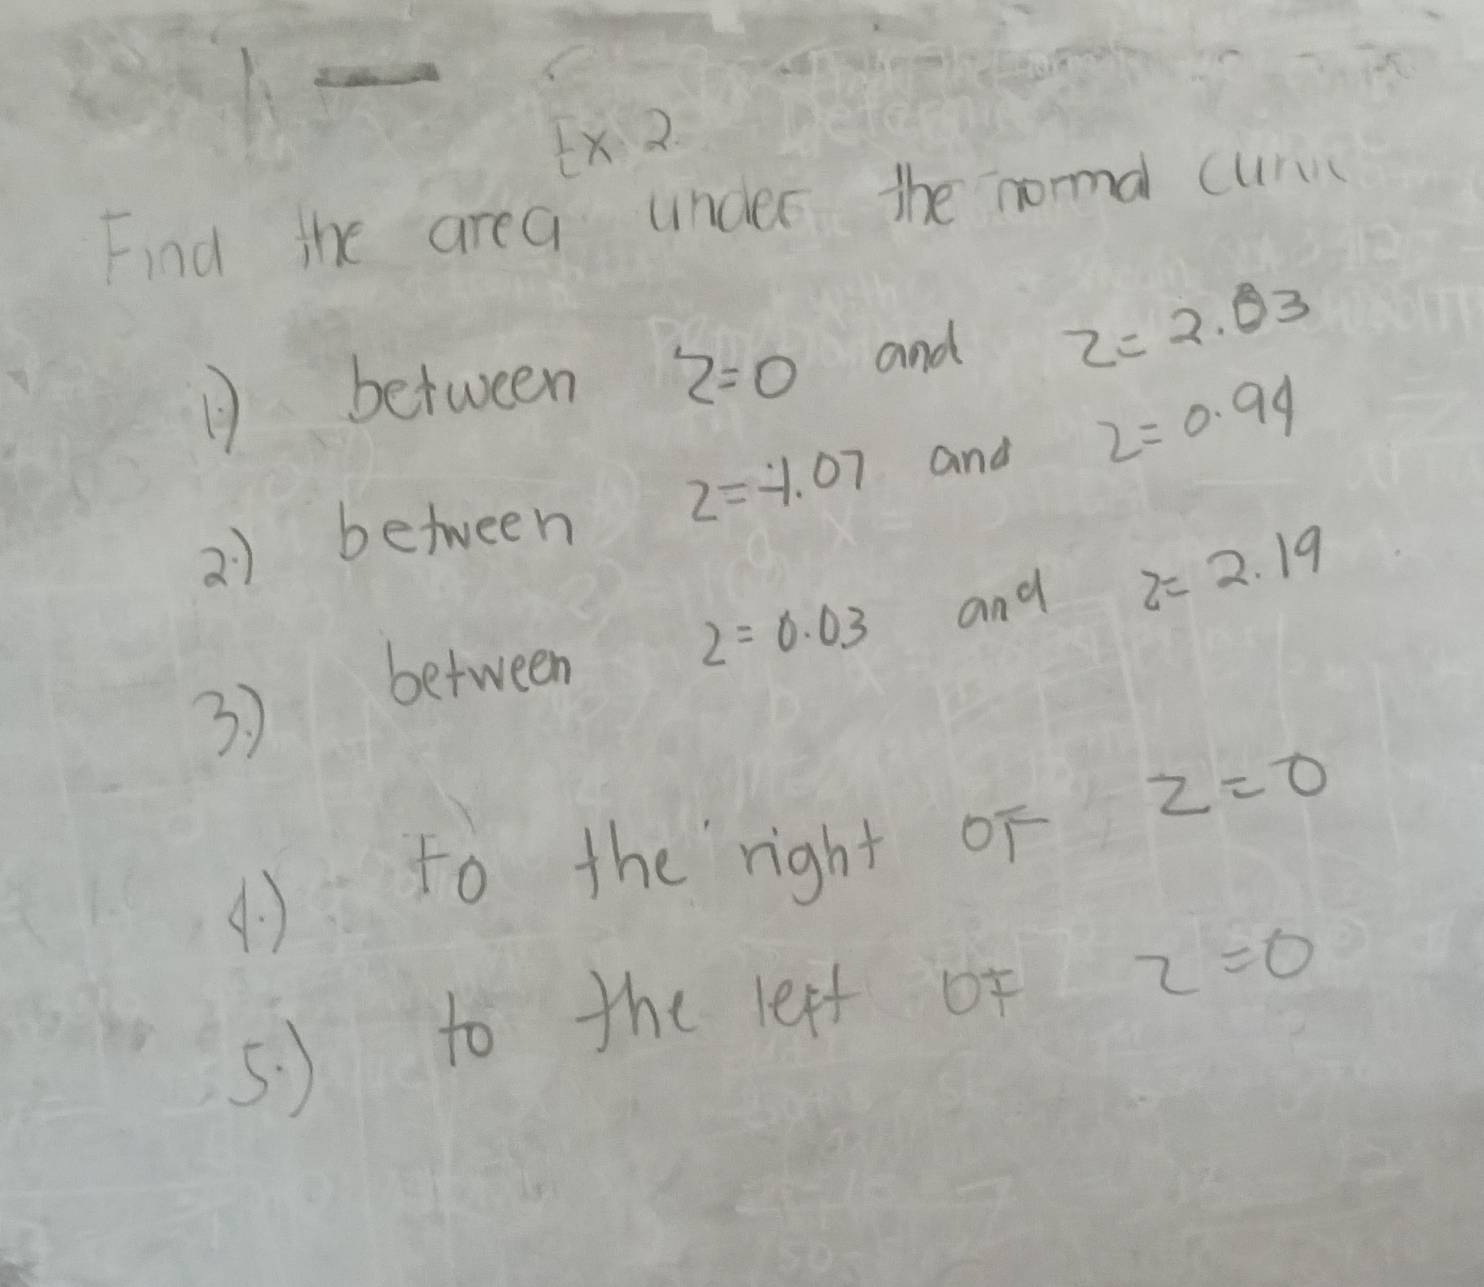 Ex. 2.
Find the area under the normal curve
1.) between z=0 and z=2.03
2.) between z=-1.07 and z=0.94
3.) between z=0.03 and z=2.19
4.) to the right of z=0
5.) to the left of z=0